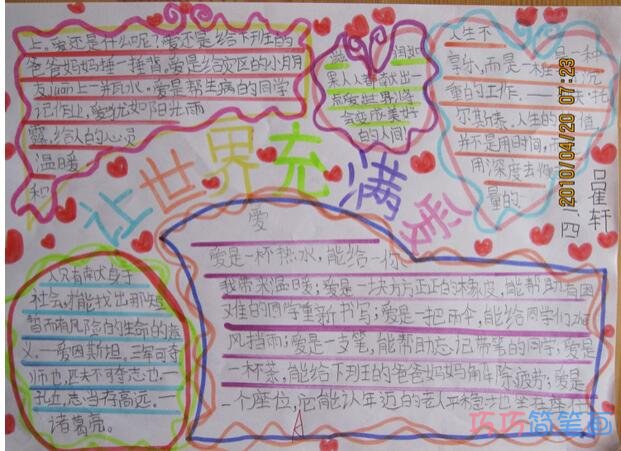 上。爱还是什么呢？爱还是给下班的
爸爸妈妈捶一捶背。爱是给灾区的小朋
友们一瓶水。爱是帮生病的同学
记作业。爱犹如阳光雨
露，给人的心灵
温暖
和
人人都献出一
点爱世界将
会变成美好
的人间
人生不
享乐，而是一种
重的工作。
尔斯泰。人生的价值，
并不是用时间，而
用深度去
量的。
2010/04/20 07:23
二四
崔轩
让世界充满爱
人只有献身于
社会才能找出那短
暂而有风险的生命的意
义。一爱因斯坦。三军可夺
帅也，匹夫不可夺志也。一
孔丘。志当存高远。一
诸葛亮。
爱
爱是一杯热水，能给一你
我带来温暖；爱是一块方方正正的橡皮，能帮助有困
难的同学重新书写；爱是一把雨伞，能给同学们遮
风挡雨；爱是一支笔，能帮助忘记带笔的同学；爱是
一杯茶，能给下班的爸爸妈妈解除疲劳；爱是
一个座位，它能让年迈的老人平稳
巧巧简笔画